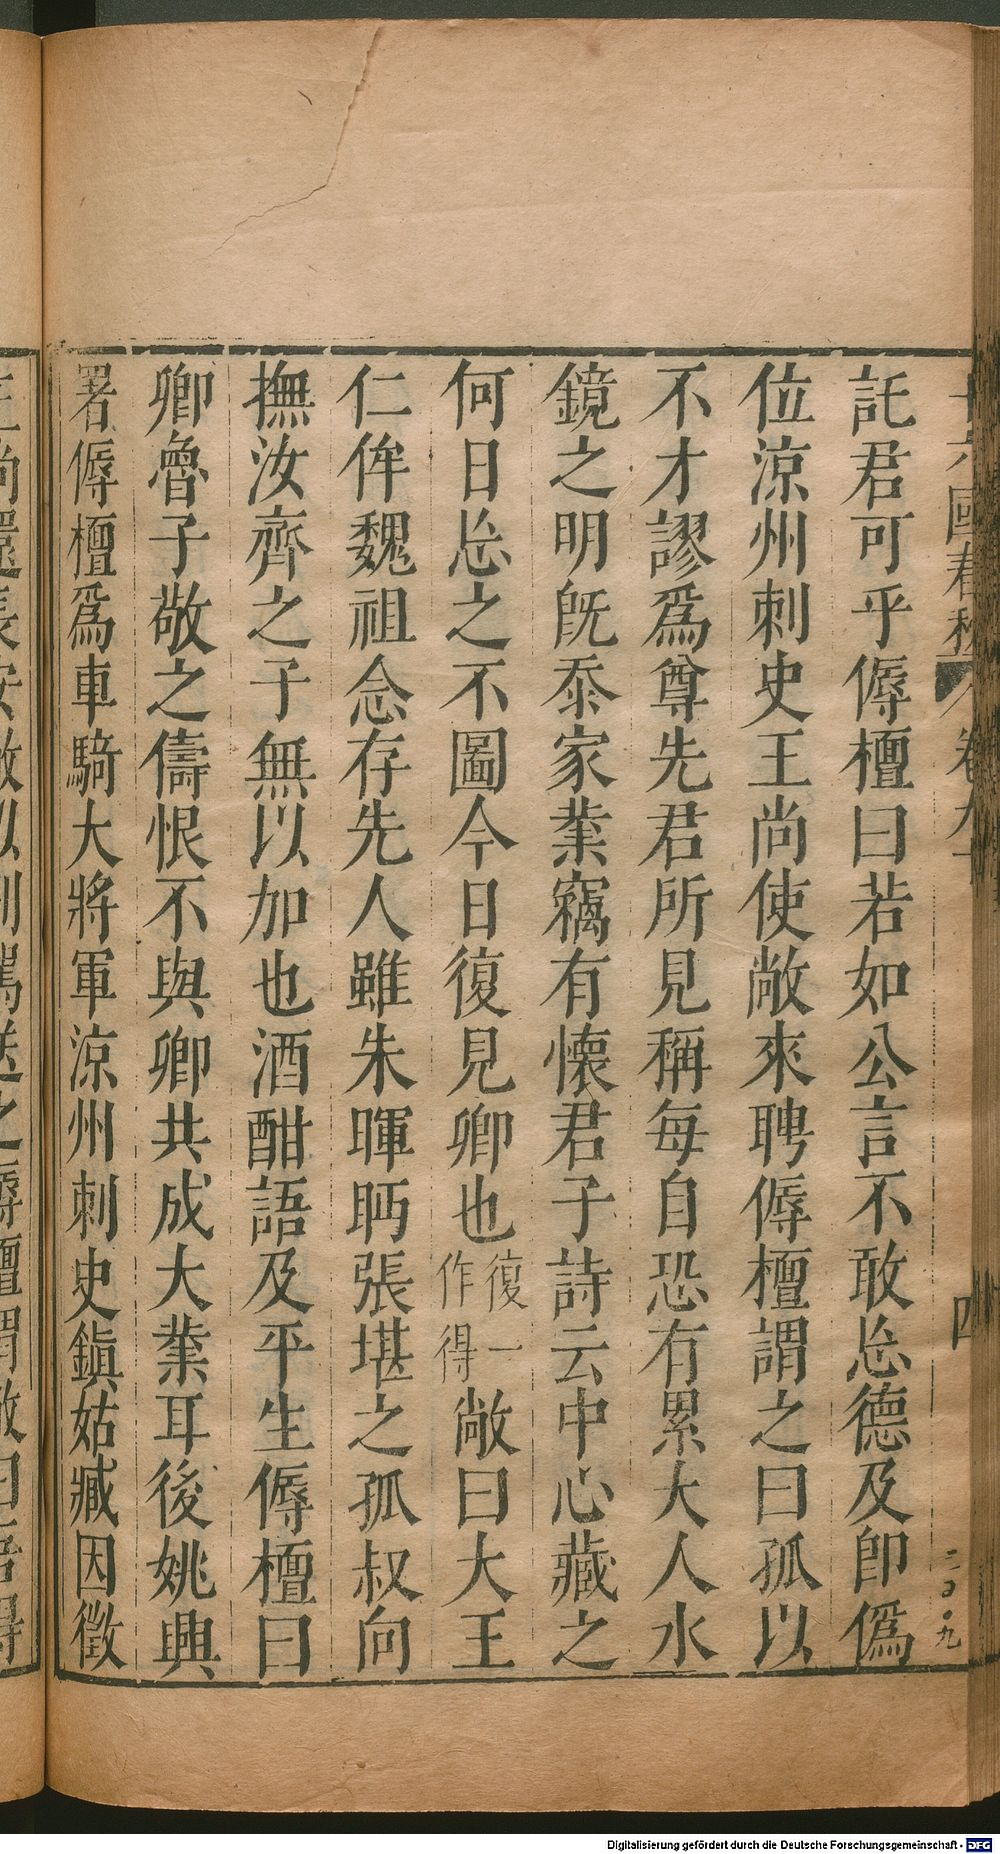 託君可乎傉檀曰若如公言不敢忘德及卽僞
位涼州刺史王尚使敞來聘傉檀謂之曰孤以
不才謬爲尊先君所見稱每自恐有累大人水
鏡之明旣忝家業竊有懷君子詩云中心藏之
何日忘之不圖今日復見卿也復一作得敞曰大王
仁侔魏祖念存先人雖朱暉眄張堪之孤叔向
撫汝齊之子無以加也酒酣語及平生傉檀曰
卿魯子敬之儔恨不與卿共成大業耳後姚興
署傉檀爲車騎大將軍涼州刺史鎭姑臧因徵
國春
四
Digitalisierung gefördert durch die Deutsche Forschungsgemeinschaft - DFG